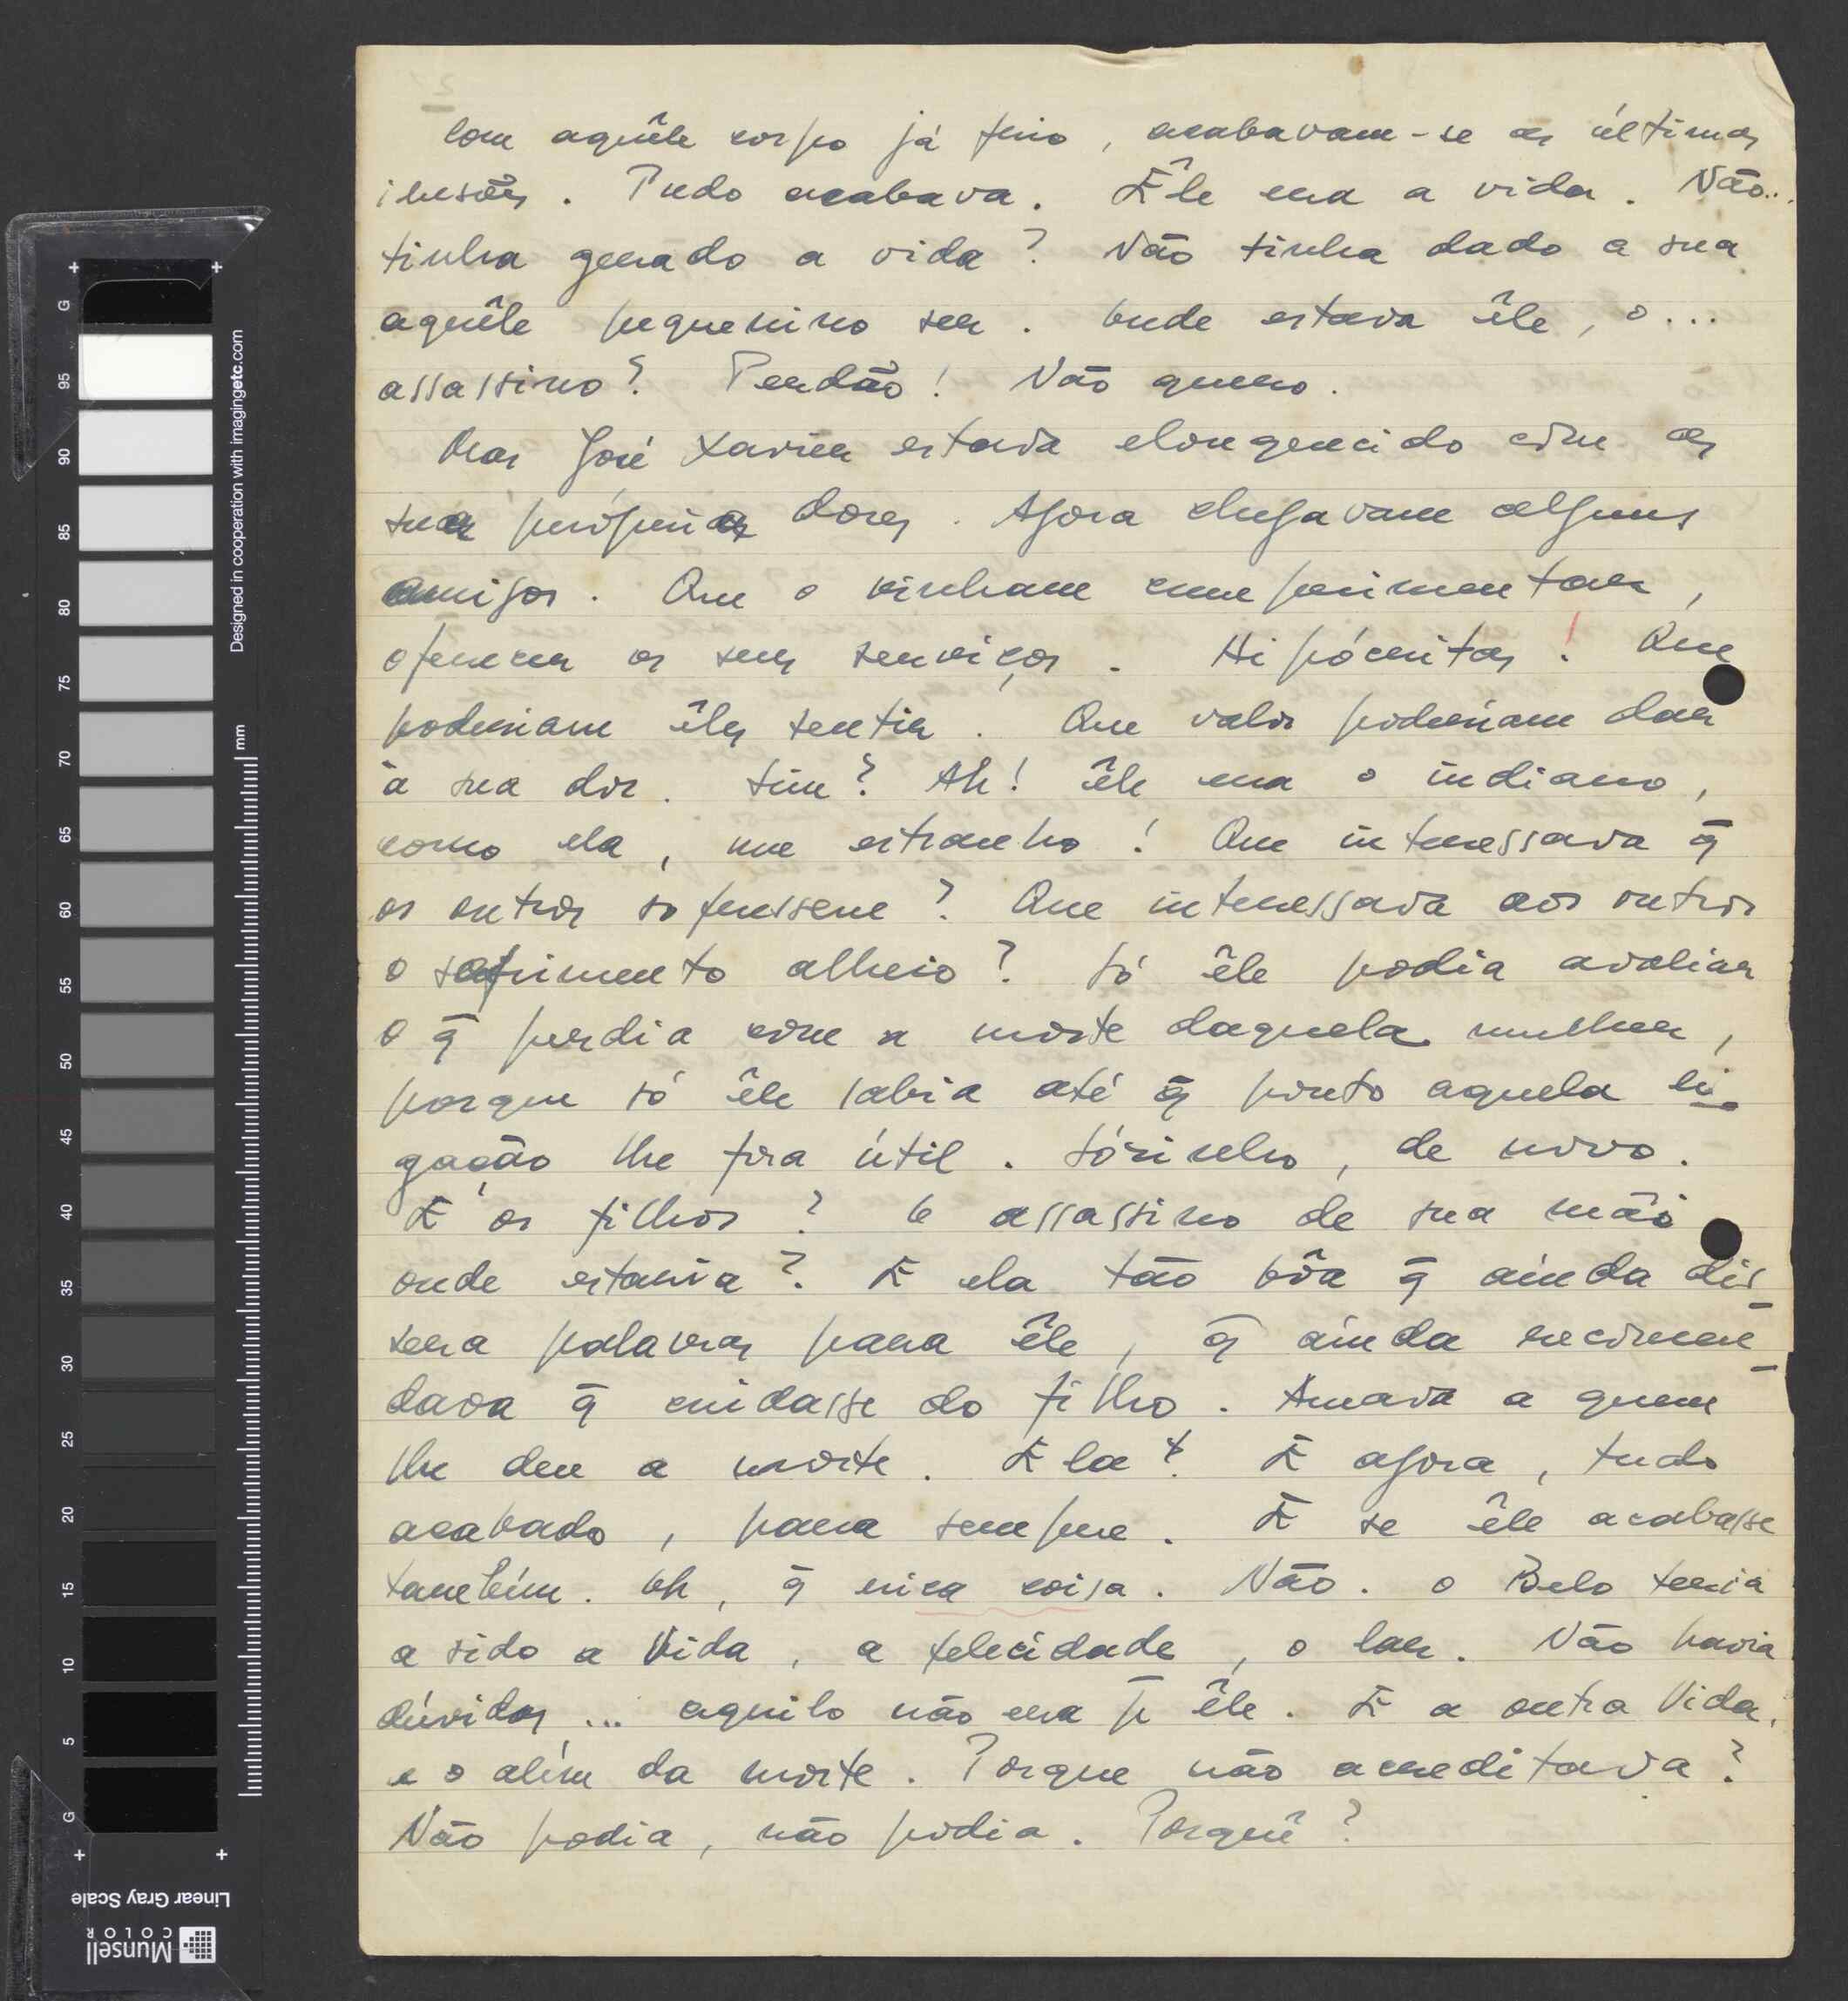 Com aquêle corpo já frio, acabavam-se as últimas
ilusões. Tudo acabava. Êle era a vida. Não...
tinha gerado a vida? Não tinha dado a sua
aquêle pequenino ser. Onde estava êle, o...
assassino? Perdão! Não quero.
Mas José Xavier estava elouquecido com as
suas próprias dores. Agora chegavam alguns
amigos. Que o vinham cumprimentar,
oferecer os seus serviços. Hipócritas! Que
poderiam êles sentir. Que valor poderiam dar
à sua dor. Sim? Ah! êle era o indiano,
como ela, um estranho! Que interessava q̃
os outros sofressem? Que interessava aos outros
o sofrimento alheio? Só êle podia avaliar
o q̃ perdia com a morte daquela mulher,
porque só êle sabia até q̃ ponto aquela li-
gação lhe fora útil. Sósinho, de novo.
E os filhos? O assassino de sua mãi
onde estaria? E ela tão bôa q̃ ainda dis-
sera palavras para êle, q̃ ainda recomen-
dava q̃ cuidasse do filho. Amava a quem
lhe deu a morte. Ela? E agora, tudo
acabado, para sempre. E se êle acabasse
também. Oh, q̃ rica coisa. Não. o Belo teria
a sido a Vida, a felecidade, o lar. Não havia
dúvidas... aquilo não era p̃ êle. E a outra Vida,
e o além da morte. Porque não acreditava?
Não podia, não podia. Porquê?
mm
Designed in cooperation with imagingetc.com
G
95
90
85
80
75
70
65
60
55
50
45
40
35
30
25
20
15
10
5
G
Linear Gray Scale
Munsell
COLOR